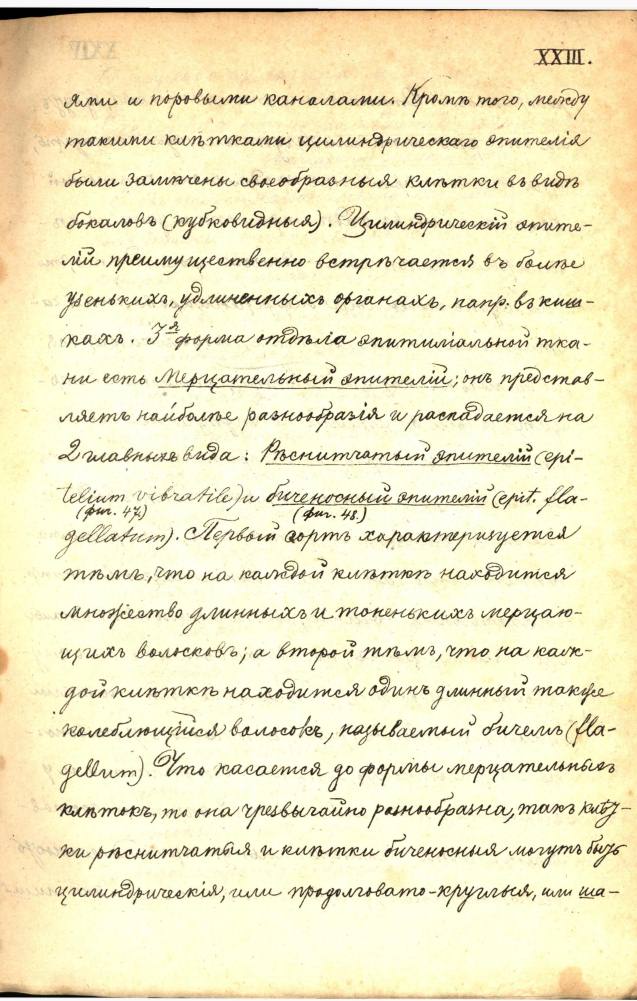 XXIII.
ями и поровыми каналами. Кромѣ того, между
такими клѣтками цилиндрическаго эпителія
были замѣчены своеобразныя клѣтки въ видѣ
бокаловъ (кубковидныя). Цилиндрическій эпите-
лій преимущественно встрѣчается въ болѣе
узенькихъ, удлиненныхъ органахъ, напр. въ киш-
кахъ. 3я форма отдѣла эпитиліальной тка-
ни есть Мерцательный эпителій; онъ представ-
ляетъ найболѣе разнообразія и распадается на
2 главныхъ вида: Рѣснитчатый эпителій (epi-
telium vibratile) и биченосный эпителій (epit. fla-
(фиг. 47.) (фиг. 48.)
gellatum). Первый сортъ характеризуется
тѣмъ, что на каждой клѣткѣ находится
множество длинныхъ и тоненькихъ мерцаю-
щихъ волосковъ; а второй тѣмъ, что на каж-
дой клѣткѣ находится одинъ длинный также
колеблющійся волосокъ, называемый бичемъ (fla-
gellum). Что касается до формы мерцательныхъ
клѣтокъ, то она чрезвычайно разнообразна, такъ клѣт-
ки рѣснитчатыя и клѣтки биченосныя могутъ быть
цилиндрическія, или продолговато-круглыя, или ша-